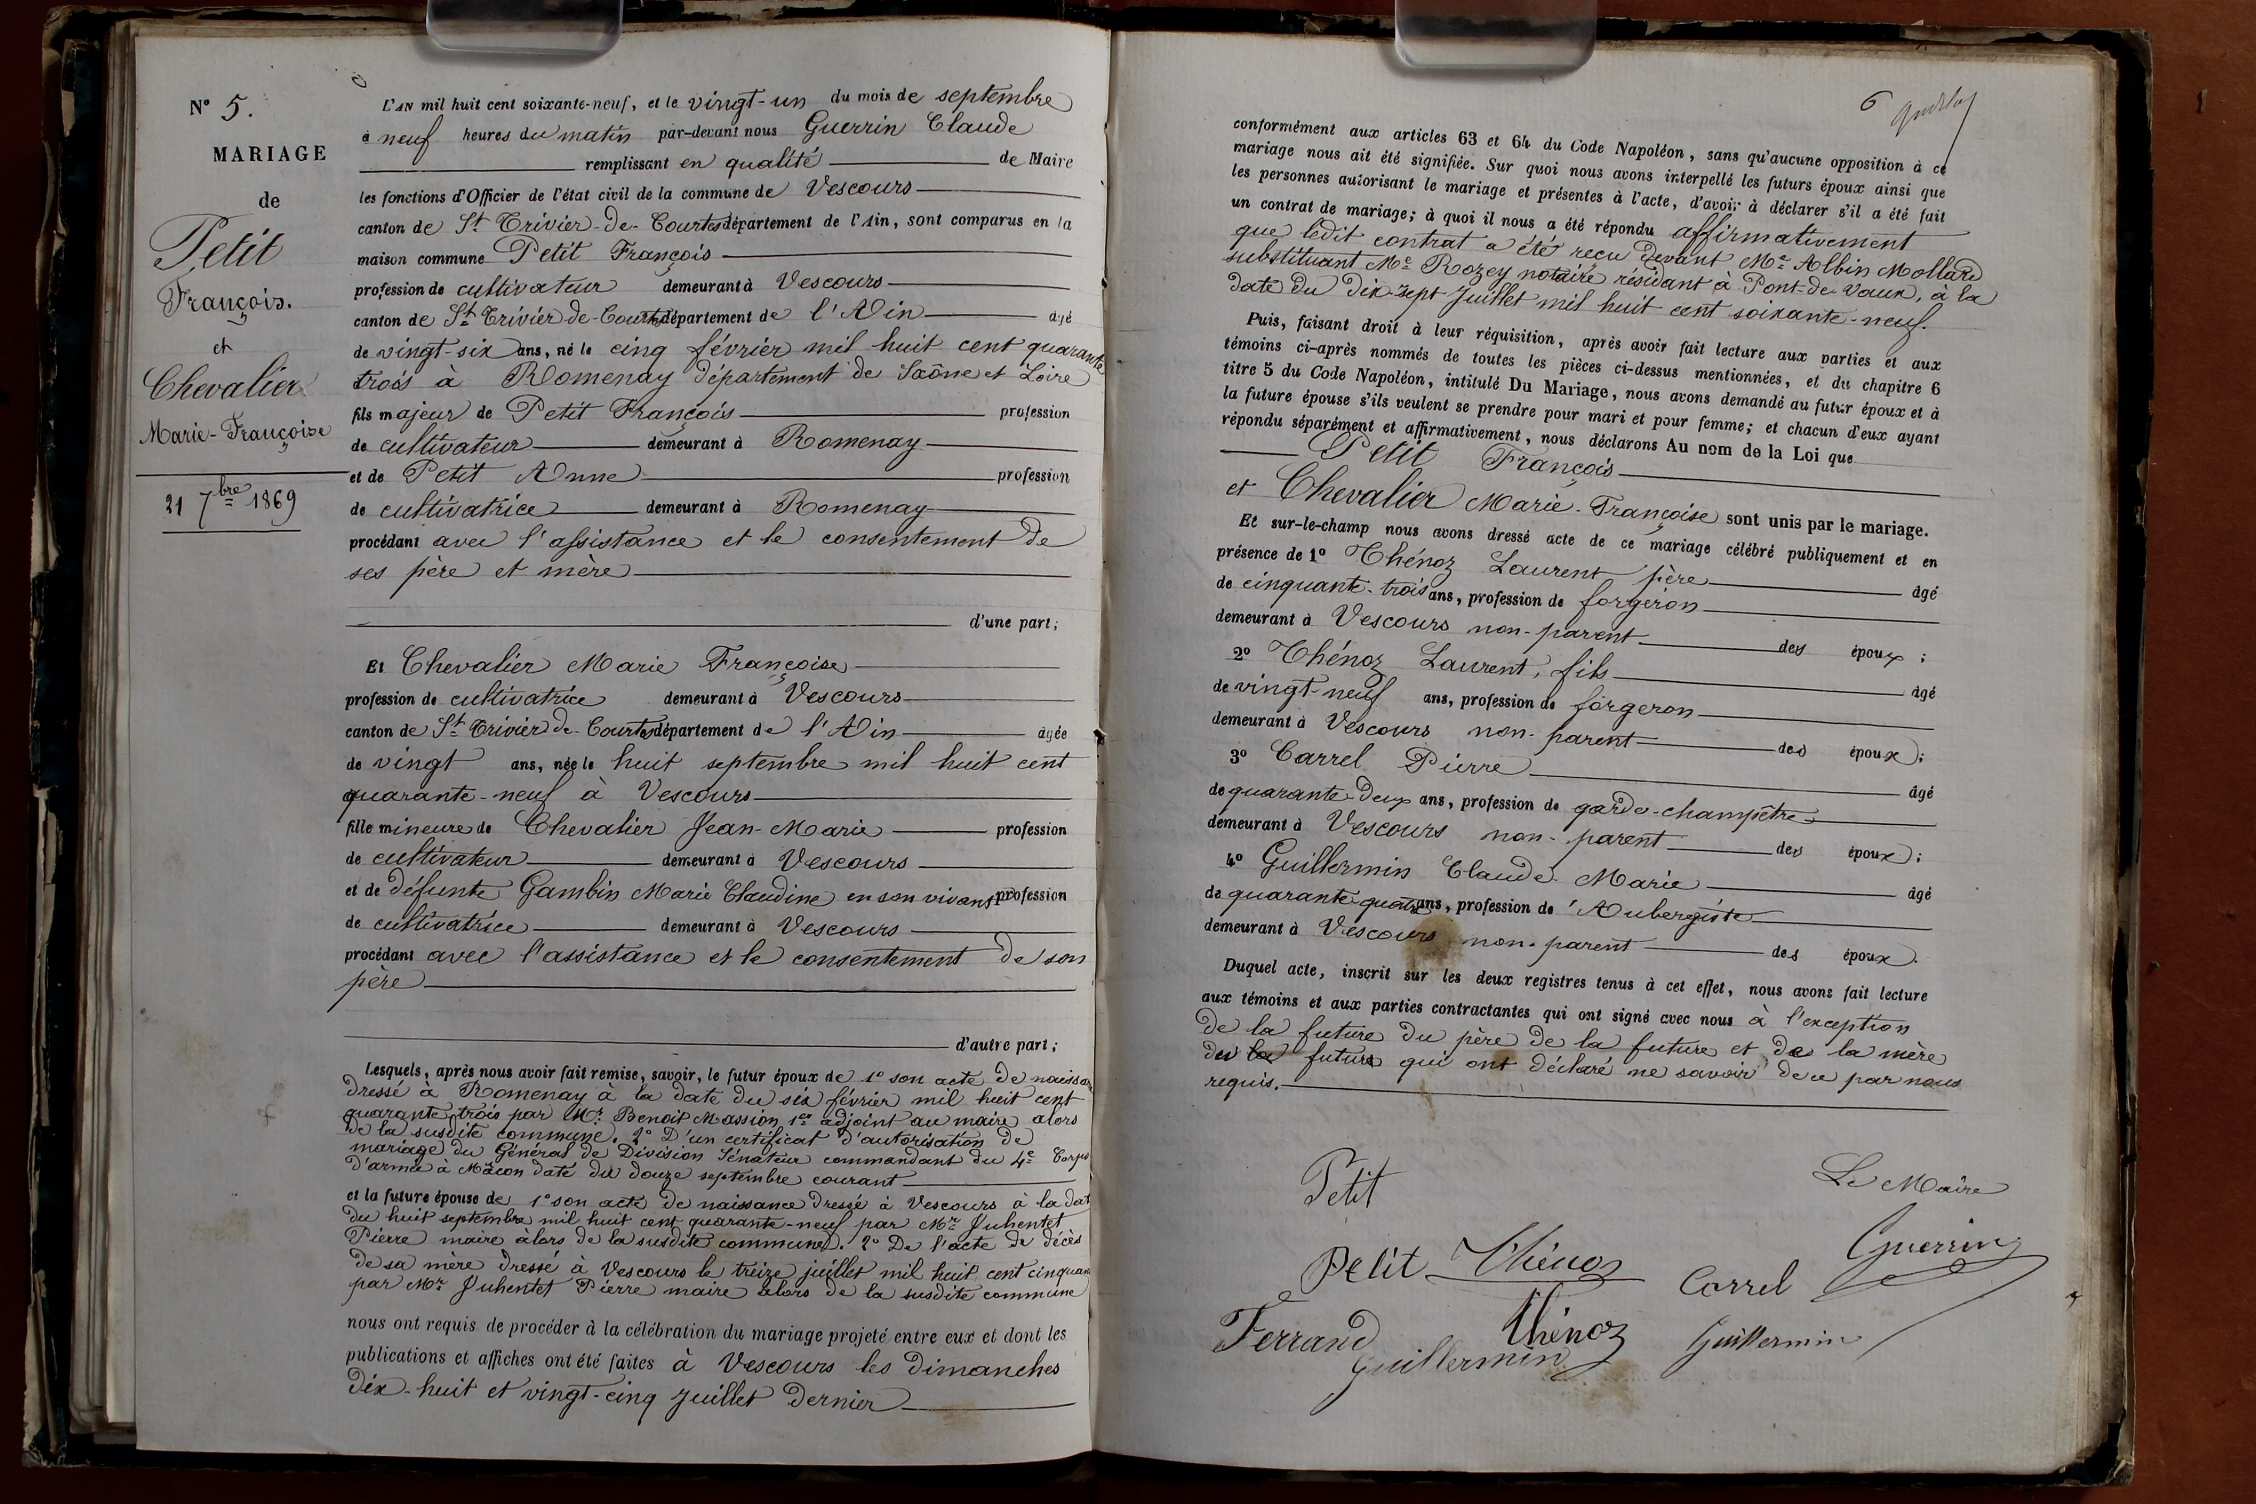 N° 5.
MARIAGE
de
Petit
François.
et
Chevalier
Marie-Françoise
21 7bre 1869
L'AN mil huit cent soixante-neuf, et le vingt-un du mois de septembre
à neuf heures du matin par-devant nous Guerrin Claude
remplissant en qualité de Maire
les fonctions d'Officier de l'état civil de la commune de Vescours
canton de St Trivier-de-Courtes département de l'Ain, sont comparus en la
maison commune Petit François
profession de cultivateur demeurant à Vescours
canton de St Trivier-de-Courtes département de l'Ain âgé
de vingt-six ans, né le cinq février mil huit cent quarante
trois à Romenay département de Saône et Loire
fils majeur de Petit François profession
de cultivateur demeurant à Romenay
et de Petit Anne profession
de cultivatrice demeurant à Romenay
procédant avec l'assistance et le consentement de
ses père et mère
d'une part;
Et Chevalier Marie Françoise
profession de cultivatrice demeurant à Vescours
canton de St Trivier-de-Courtes département de l'Ain âgée
de vingt ans, née le huit septembre mil huit cent
quarante-neuf à Vescours
fille mineure de Chevalier Jean-Marie profession
de cultivateur demeurant à Vescours
et de défunte Gambin Marie Claudine en son vivant profession
de cultivatrice demeurant à Vescours
procédant avec l'assistance et le consentement de son
père
d'autre part;
Lesquels, après nous avoir fait remise, savoir, le futur époux de 1° son acte de naissa
dressé à Romenay à la date du six février mil huit cent
quarante trois par Mr. Benoit Massion 1er adjoint au maire alors
de la susdite commune. 2° D'un certificat d'autorisation de
mariage du Général de Division Sénateur commandant du 4e Corps
d'armée à Mâcon daté du douze septembre courant
et la future épouse de 1° son acte de naissance dressé à Vescours à la dat
du huit septembre mil huit cent quarante-neuf par Mr Juhentet
Pierre maire alors de la susdite commune. 2° De l'acte de décès
de sa mère dressé à Vescours le treize juillet mil huit cent cinquan
par Mr Juhentet Pierre maire alors de la susdite commune
nous ont requis de procéder à la célébration du mariage projeté entre eux et dont les
publications et affiches ont été faites à Vescours les dimanches
dix-huit et vingt-cinq juillet dernier
6
conformément aux articles 63 et 64 du Code Napoléon, sans qu'aucune opposition à ce
mariage nous ait été signifiée. Sur quoi nous avons interpellé les futurs époux ainsi que
les personnes autorisant le mariage et présentes à l'acte, d'avoir à déclarer s'il a été fait
un contrat de mariage; à quoi il nous a été répondu affirmativement
que ledit contrat a été reçu devant Me Albin Mollard
substituant Me Rozey notaire résidant à Pont-de-Vaux, à la
date du dix-sept juillet mil huit cent soixante-neuf.
Puis, faisant droit à leur réquisition, après avoir fait lecture aux parties et aux
témoins ci-après nommés de toutes les pièces ci-dessus mentionnées, et du chapitre 6
titre 5 du Code Napoléon, intitulé Du Mariage, nous avons demandé au futur époux et à
la future épouse s'ils veulent se prendre pour mari et pour femme; et chacun d'eux ayant
répondu séparément et affirmativement, nous déclarons Au nom de la Loi que
Petit François
et Chevalier Marie-Françoise sont unis par le mariage.
Et sur-le-champ nous avons dressé acte de ce mariage célébré publiquement et en
présence de 1° Thénoz Laurent père âgé
de cinquante-trois ans, profession de forgeron
demeurant à Vescours non-parent des époux;
2° Thénoz Laurent, fils âgé
de vingt-neuf ans, profession de forgeron
demeurant à Vescours non-parent des époux;
3° Carrel Pierre âgé
de quarante-deux ans, profession de garde-champêtre
demeurant à Vescours non-parent des époux;
4° Guillermin Claude Marie âgé
de quarante-quatre ans, profession de Aubergiste
demeurant à Vescours non-parent des époux.
Duquel acte, inscrit sur les deux registres tenus à cet effet, nous avons fait lecture
aux témoins et aux parties contractantes qui ont signé avec nous à l'exception
de la future du père de la future et de la mère
du futur qui ont déclaré ne savoir de ce par nous
requis.
Petit Le Maire
Petit Thénoz Carrel Guerrin
Ferrand Thénoz Guillermin
Guillermin